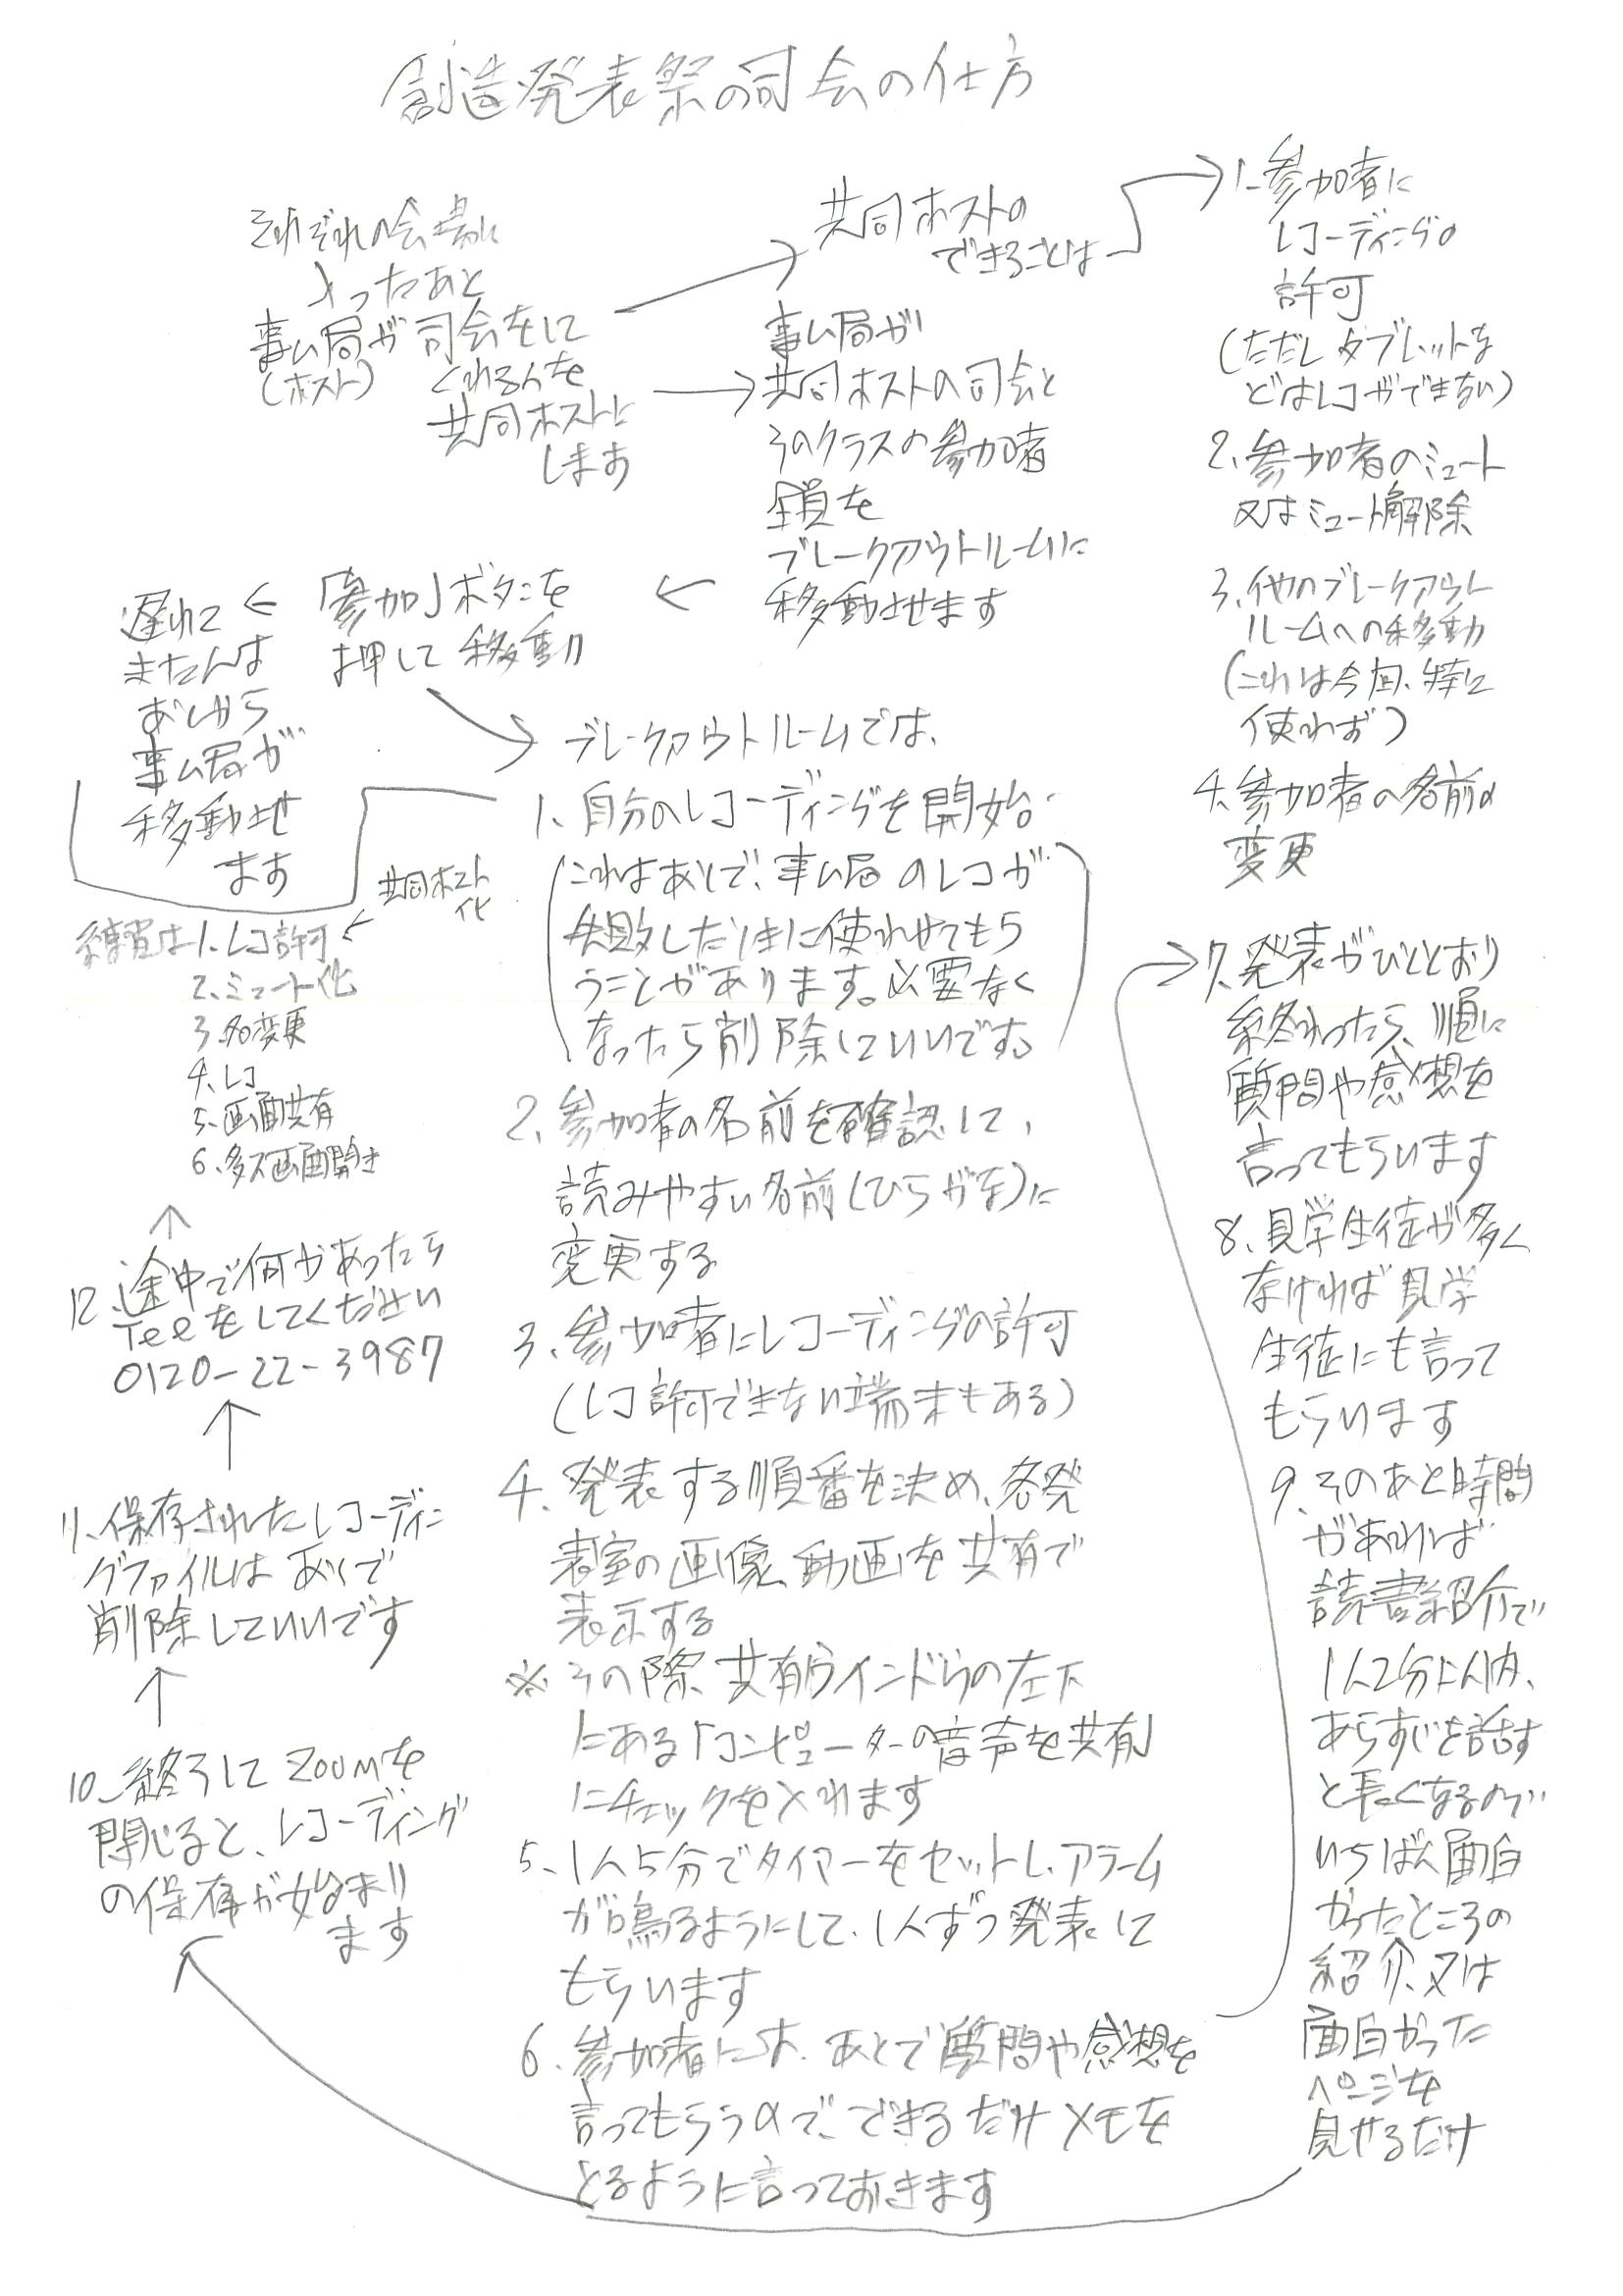 創造発表祭の司会の仕方
それぞれの会場に
入ったあと
事ム局が司会をして
(ホスト) くれる人を
共同ホストに
します
共同ホストの
できることは
1. 参加者に
レコーディングの
許可
(ただしタブレットな
どはレコができない)
2. 参加者のミュート
又はミュート解除
3. 他のブレークアウト
ルームへの移動
(これは今回、特に
使わず)
4. 参加者の名前の
変更
事ム局が
共同ホストの司会と
そのクラスの参加者
全員を
ブレークアウトルームに
移動させます
「参加」ボタンを
押して移動
遅れて
きた人は
あとから
事ム局が
移動させ
ます
ブレークアウトルームでは、
1. 自分のレコーディングを開始.
(これはあとで、事ム局のレコが
失敗したときに使わせてもら
うことがあります。必要なく
なったら削除していいです。)
2. 参加者の名前を確認して、
読みやすい名前(ひらがな)に
変更する
3. 参加者にレコーディングの許可
(レコ許可できない端末もある)
4. 発表する順番を決め、各発
表室の画像、動画を共有で
表示する
※その際、共有ウインドウの左下
にある「コンピューターの音声を共有」
にチェックを入れます
5. 1人5分でタイマーをセットし、アラーム
が鳴るようにして、1人ずつ発表して
もらいます
6. 参加者には、あとで質問や感想を
言ってもらうので、できるだけメモを
とるように言っておきます
7. 発表がひととおり
終わったら、順に
質問や感想を
言ってもらいます
8. 見学生徒が多く
なければ見学
生徒にも言って
もらいます
9. そのあと時間
があれば
読書紹介で
1人2分以内、
あらすじを話す
と長くなるので
いちばん面白
かったところの
紹介、又は
面白かった
ページを
見せるだけ
10. 終了してZOOMを
閉じると、レコーディング
の保存が始まり
ます
11. 保存されたレコーディン
グファイルはあとで
削除していいです
12. 途中で何かあったら
Telをしてください
0120-22-3987
共同ホスト
化
練習は1. レコ許可
2. ミュート化
3. 名変更
4. レコ
5. 画面共有
6. 多ズ画面開き